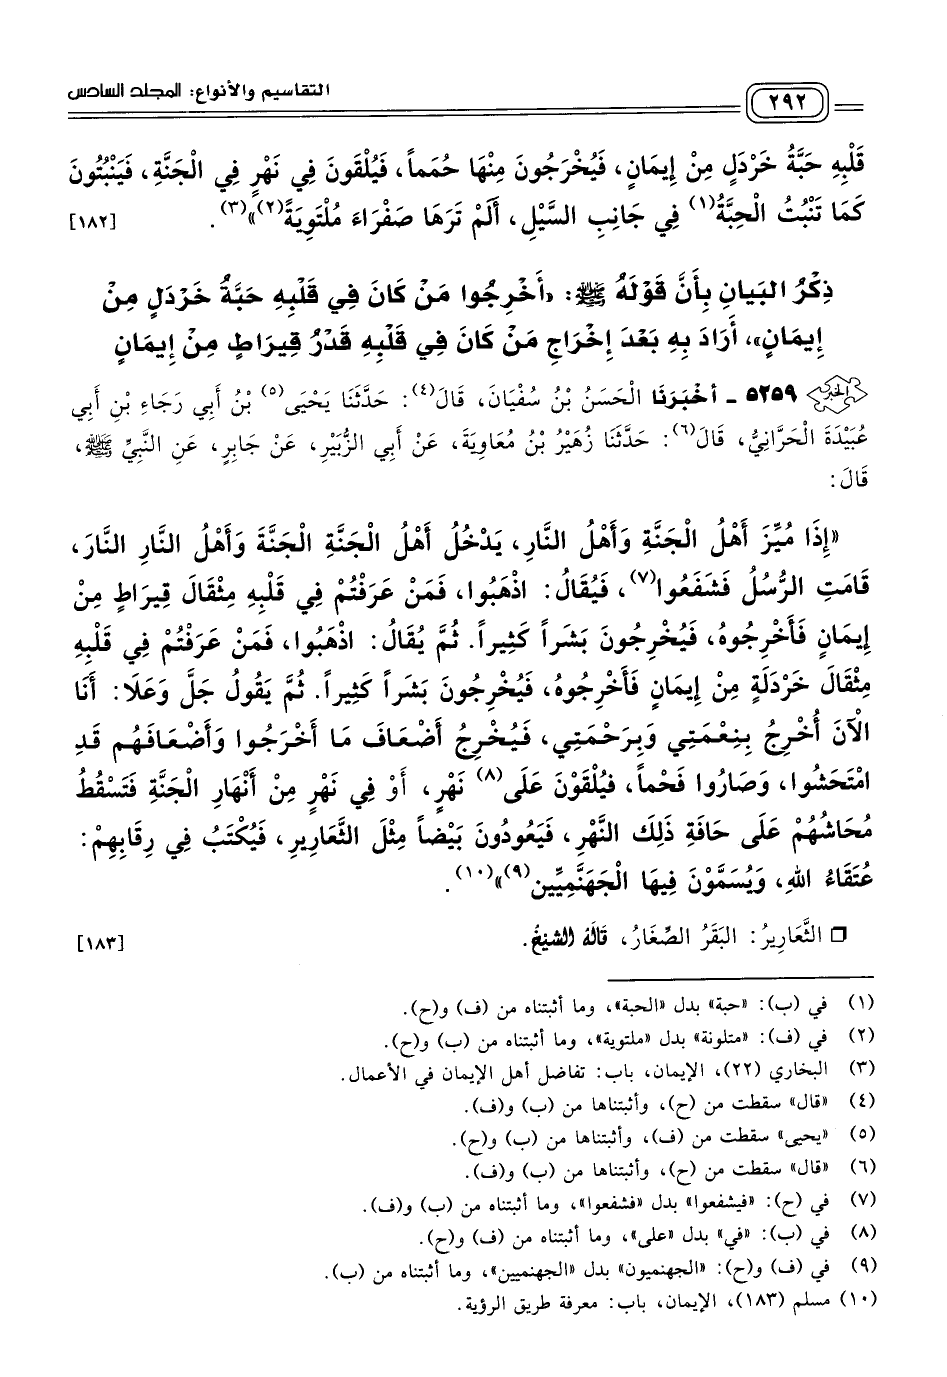 ٢٩٢
التقاسيم والأنواع: المجلد السادس
قَلْبِهِ حَبَّةُ خَرْدَلٍ مِنْ إِيمَانٍ، فَيُخْرَجُونَ مِنْهَا حُمَماً، فَيُلْقَونَ فِي نَهْرٍ فِي الْجَنَّةِ، فَيَنْبُتُونَ
كَمَا تَنْبُتُ الْحِبَّةُ(١) فِي جَانِبِ السَّيْلِ، أَلَمْ تَرَهَا صَفْرَاءَ مُلْتَوِيَةً(٢)»(٣). [١٨٢]
ذِكْرُ البَيانِ بِأَنَّ قَوْلَهُ ﷺ: «أَخْرِجُوا مَنْ كَانَ فِي قَلْبِهِ حَبَّةُ خَرْدَلٍ مِنْ
إِيمَانٍ»، أَرَادَ بِهِ بَعْدَ إِخْرَاجِ مَنْ كَانَ فِي قَلْبِهِ قَدْرُ قِيرَاطٍ مِنْ إِيمَانٍ
٥٢٥٩ ـ أخْبَرَنَا الْحَسَنُ بْنُ سُفْيَانَ، قَالَ(٤): حَدَّثَنَا يَحْيَى(٥) بْنُ أَبِي رَجَاءِ بْنِ أَبِي
عُبَيْدَةَ الْحَرَّانِيُّ، قَالَ(٦): حَدَّثَنَا زُهَيْرُ بْنُ مُعَاوِيَةَ، عَنْ أَبِي الزُّبَيْرِ، عَنْ جَابِرٍ، عَنِ النَّبِيِّ ﷺ،
قَالَ:
«إِذَا مُيِّزَ أَهْلُ الْجَنَّةِ وَأَهْلُ النَّارِ، يَدْخُلُ أَهْلُ الْجَنَّةِ الْجَنَّةَ وَأَهْلُ النَّارِ النَّارَ،
قَامَتِ الرُّسُلُ فَشَفَعُوا(٧)، فَيُقَالُ: اذْهَبُوا، فَمَنْ عَرَفْتُمْ فِي قَلْبِهِ مِثْقَالَ قِيرَاطٍ مِنْ
إِيمَانٍ فَأَخْرِجُوهُ، فَيُخْرِجُونَ بَشَراً كَثِيراً. ثُمَّ يُقَالُ: اذْهَبُوا، فَمَنْ عَرَفْتُمْ فِي قَلْبِهِ
مِثْقَالَ خَرْدَلَةٍ مِنْ إِيمَانٍ فَأَخْرِجُوهُ، فَيُخْرِجُونَ بَشَراً كَثِيراً. ثُمَّ يَقُولُ جَلَّ وَعَلَا: أَنَا
الْآنَ أُخْرِجُ بِنِعْمَتِي وَبِرَحْمَتِي، فَيُخْرِجُ أَضْعَافَ مَا أَخْرَجُوا وَأَضْعَافَهُم قَدِ
امْتَحَشُوا، وَصَارُوا فَحْماً، فَيُلْقَوْنَ عَلَى(٨) نَهْرٍ، أَوْ فِي نَهْرٍ مِنْ أَنْهَارِ الْجَنَّةِ فَتَسْقُطُ
مُحَاشُهُمْ عَلَى حَافَةِ ذَلِكَ النَّهْرِ، فَيَعُودُونَ بَيْضاً مِثْلَ الثَّعَارِيرِ، فَيُكْتَبُ فِي رِقَابِهِمْ:
عُتَقَاءُ اللهِ، وَيُسَمَّوْنَ فِيهَا الْجَهَنَّمِيِّين(٩)»(١٠).
❒ الثَّعَارِيرُ: البَقَرُ الصِّغَارُ، قَالَهُ الشيخُ. [١٨٣]
(١) في (ب): «حبة» بدل «الحبة»، وما أثبتناه من (ف) و(ح).
(٢) في (ف): «متلونة» بدل «ملتوية»، وما أثبتناه من (ب) و(ح).
(٣) البخاري (٢٢)، الإيمان، باب: تفاضل أهل الإيمان في الأعمال.
(٤) «قال» سقطت من (ح)، وأثبتناها من (ب) و(ف).
(٥) «يحيى» سقطت من (ف)، وأثبتناها من (ب) و(ح).
(٦) «قال» سقطت من (ح)، وأثبتناها من (ب) و(ف).
(٧) في (ح): «فيشفعوا» بدل «فشفعوا»، وما أثبتناه من (ب) و(ف).
(٨) في (ب): «في» بدل «على»، وما أثبتناه من (ف) و(ح).
(٩) في (ف) و(ح): «الجهنميون» بدل «الجهنميين»، وما أثبتناه من (ب).
(١٠) مسلم (١٨٣)، الإيمان، باب: معرفة طريق الرؤية.